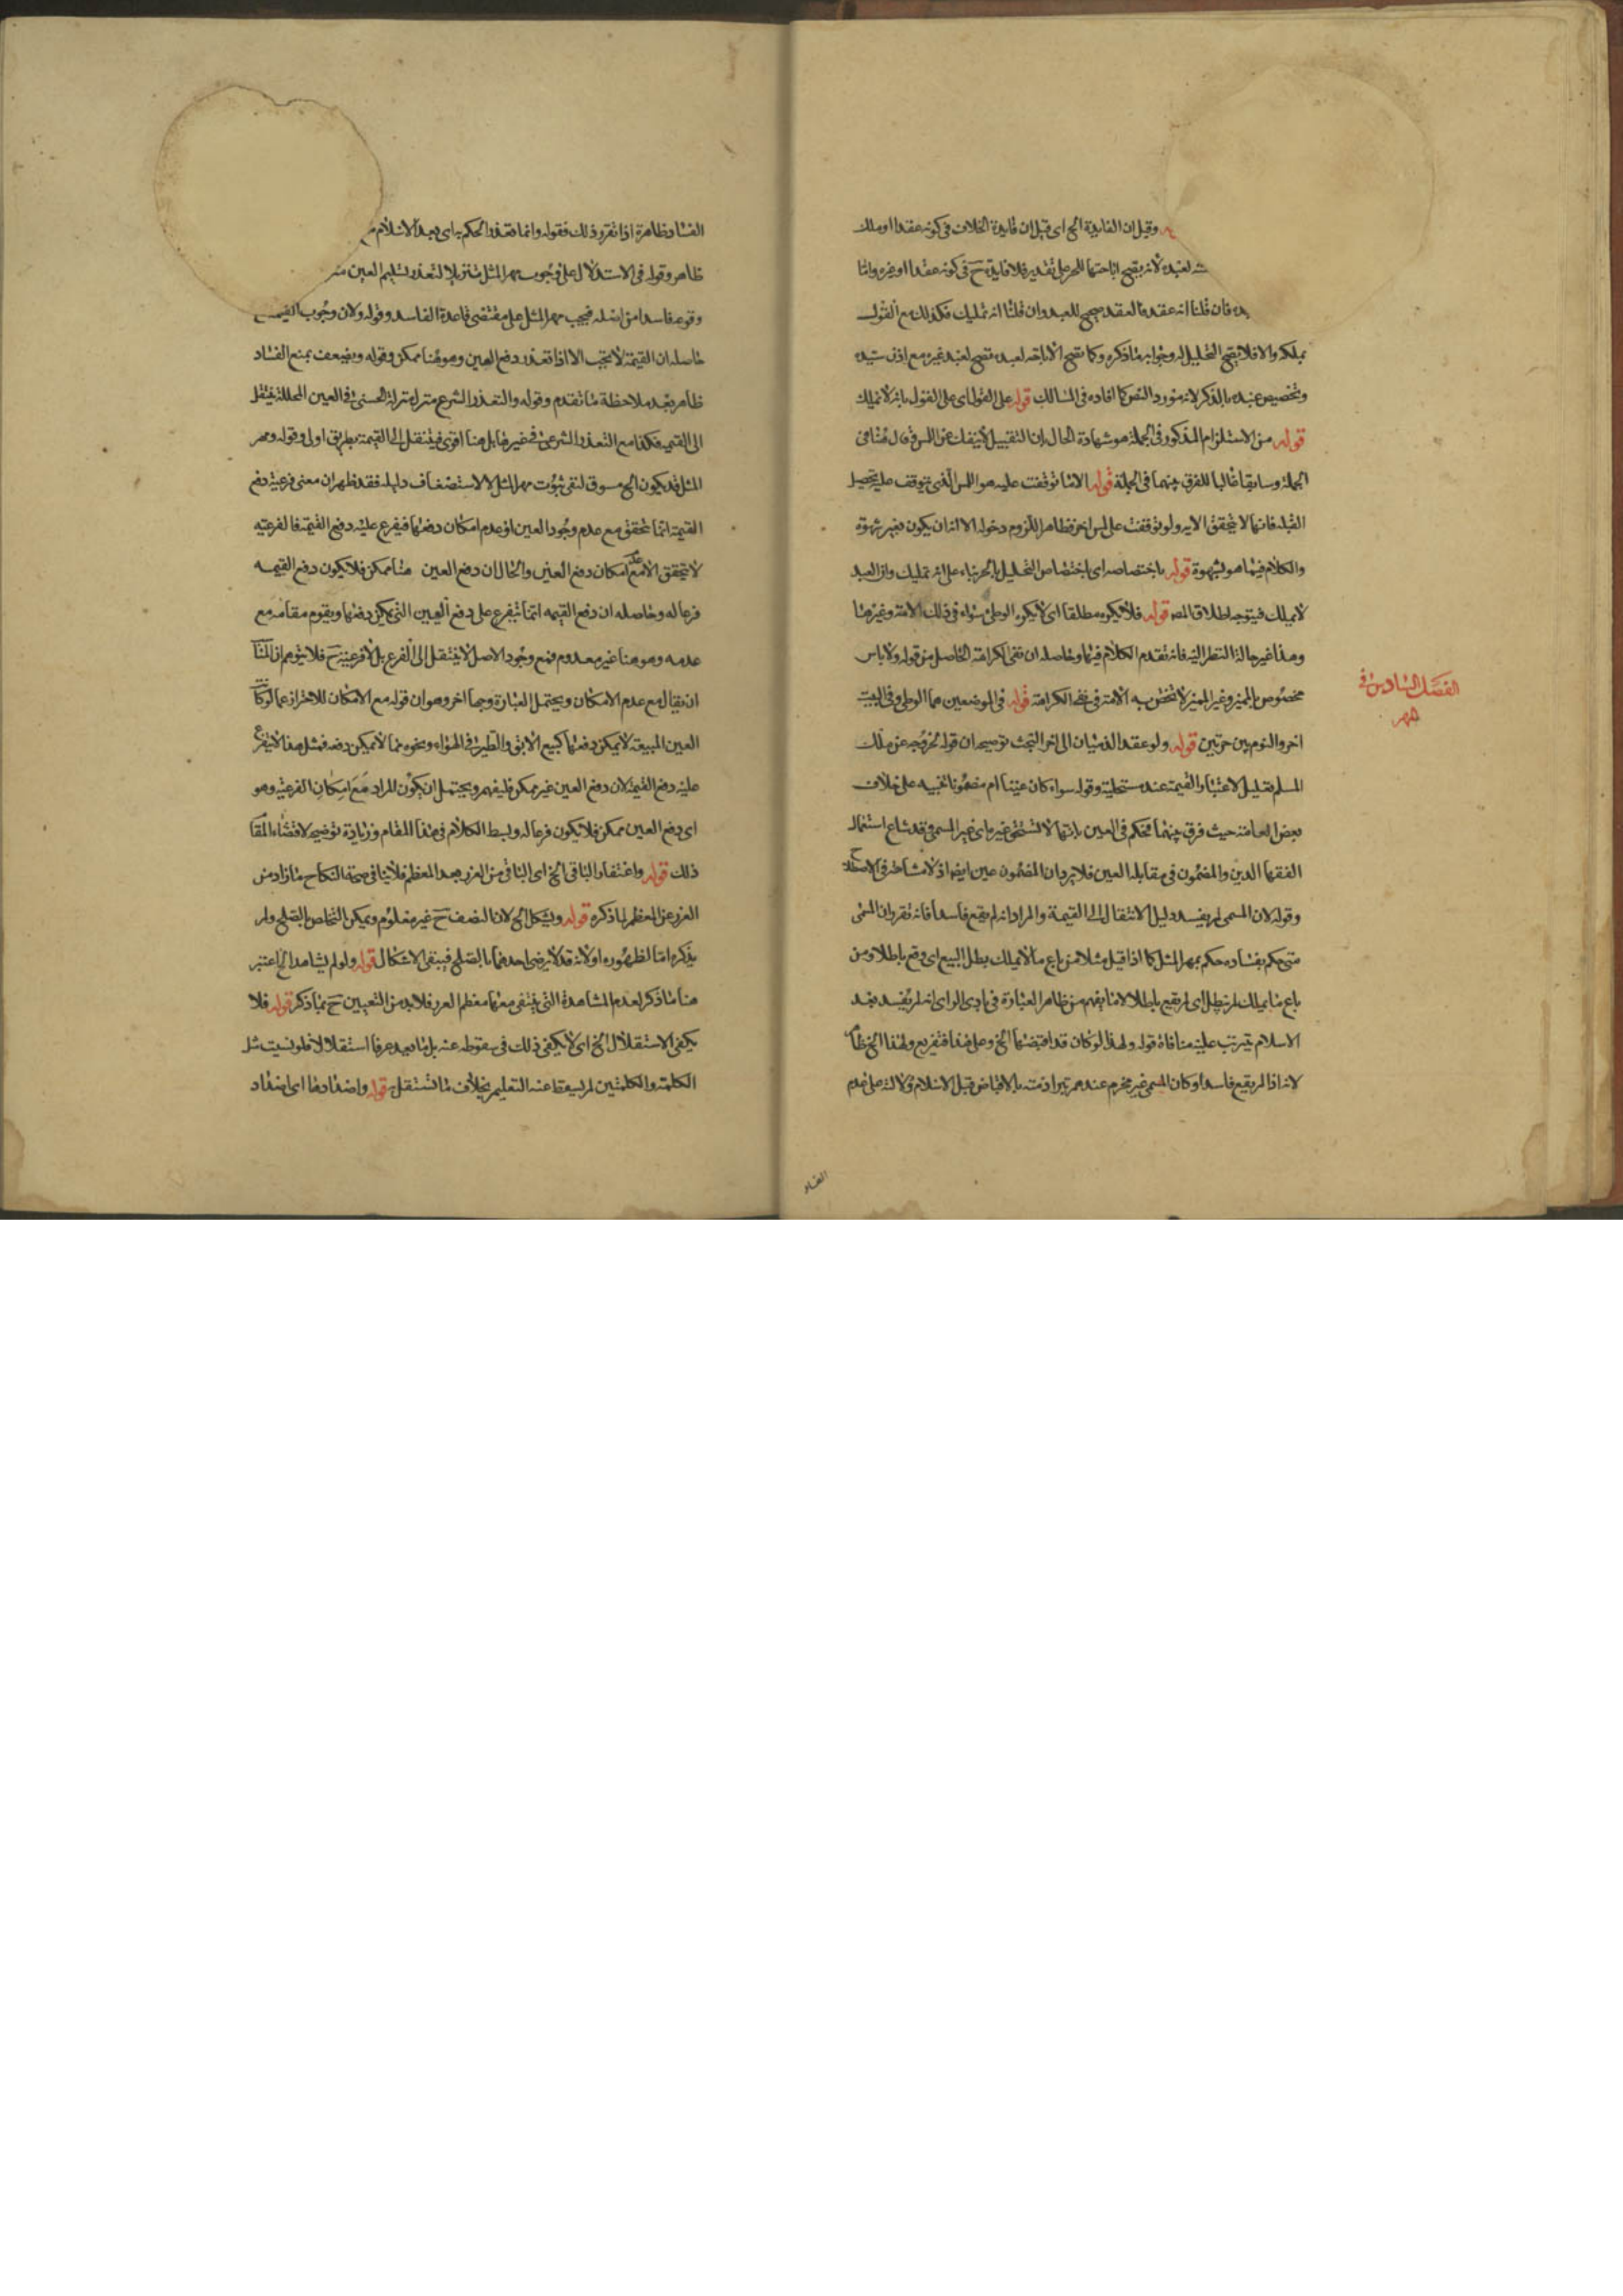 وقيل ان الفايدة الخ اى قيل ان فايدة الخلاف فى كونه عقدا او ملك
لعبده لانه يصح اباحتها للحر على تقديره فلا فايدة ح فى كونه عقدا او غيره واما
فان قلنا انه عقد فالعقد صحيح للعبد وان قلنا انه تمليك فكذلك مع القول
بملكه والا فلا يصح التحليل له وجوابه ما ذكره وكما تصح الاباحة لعبده تصح لعبد غيره مع اذن سيده
وتخصيص عبده بالذكر لانه مورد النص كما افاده فى المسالك قوله على القول اى على القول بانه لا يملك
قوله من الاستلزام المذكور فى الجملة هو شهادة الحال بان التقبيل لا ينفك عن اللمس
الجملة وسابقا غالبا للفرق بينهما فى الجملة قوله الا ما توقفت عليه هو اللمس الذى يتوقف عليه تحصيل
القبلة فانها لا تتحقق الا به ولو توقفت على لمس اخر فظاهر اللزوم دخوله الا ان يكون بغير شهوة
والكلام فيما هو بشهوة قوله باختصاصه اى اختصاص التحليل بالحر بناء على انه تمليك وان العبد
لا يملك فيتوجه اطلاق المص قوله فلا يكره مطلقا اى لا يكره الوطئ سواء فى ذلك الامة وغيرها
وهذا غير حالة النظر اليه فانه تقدم الكلام فيها وحاصله ان نفى الكراهة الحاصل من قوله ولا باس
مخصوص بالمميز وغير المميز لا تختص به الامة فى نفى الكراهة قوله فى الموضعين هما الوطى وفى البيت
اخر والنوم بين حرتين قوله ولو عقد الذميان الى اخر البحث توضيحه ان قوله لخروجه عن ملك
المسلم تعليل لاعتبار القيمة عند مستحليه وقوله سواء كان عينا ام مضمونا تنبيه على خلاف
بعض العامة حيث فرق بينهما فحكم فى العين بانها لا تستحق غيره اى غير المسمى وقد شاع استعمال
الفقها الدين والمضمون فى مقابلة العين فلا يرد ان المضمون عين ايضا اذ لا مشاحة فى الاصطلاح
وقوله لان المسمى لم يفسد دليل الانتقال الى القيمة والمراد انه لم يقع فاسدا فانه تقرر ان المسمى
متى حكم بفساده حكم بمهر المثل كما اذا قيل مثلا من باع ما لا يملك بطل البيع اى وقع باطلا ومن
باع ما يملك لم يبطل اى لم يقع باطلا لا ما يفهم من ظاهر العبارة فى بادى الراى انه لم يفسد بعد
الاسلام يترتب عليه منافاة قوله ولهذا لو كان قد اقبضها الخ وعلى هذا فتفريع ولهذا الخ ظاهر
لانه اذا لم يقع فاسدا وكان المسمى غير محرم عندهم تبرا ذمته بالاقباض قبل الاسلام ودلالته على عدم
الفصل السادس فى
المهر
الفساد
الفساد ظاهرة اذا تقرر ذلك فقوله وانما تعذر الحكم به اى بعد الاسلام
ظاهر وقوله فى الاستدلال على وجوب مهر المثل تنزيلا لتعذر تسليم العين
وقوعه فاسدا من اصله فيجب مهر المثل على مقتضى قاعدة الفاسد وقوله ولان وجوب القيمة
حاصله ان القيمة لا تجب الا اذا تعذر دفع العين وهو هنا ممكن وقوله ويضعف بمنع الفساد
ظاهر بعد ملاحظة ما تقدم وقوله والتعذر الشرعى منزل منزلة الحسى فى العين المحللة ينتقل
الى القيمة فكذا مع التعذر الشرعى فى غير قابل هنا اقوى فينتقل الى القيمة بطريق اولى وقوله ومهر
المثل قد يكون الخ مسوق لنفى ثبوت مهر المثل لا لاستضعاف دليله فقد ظهر ان معنى فرعية دفع
القيمة انما تتحقق مع عدم وجود العين او عدم امكان دفعها فيفرع عليه دفع القيمة فالفرعية
لا تتحقق الا مع عدم امكان دفع العين والحال ان دفع العين هنا ممكن فلا يكون دفع القيمة
فرعا له وحاصله ان دفع القيمة انما يتفرع على دفع العين التى يمكن دفعها ويقوم مقامه مع
عدمه وهو هنا غير معدوم فمع وجود الاصل لا ينتقل الى الفرع بل لا فرعية ح فلا يتوهم ان المناسب
ان يقال مع عدم الامكان ويحتمل العبارة وجها اخر وهو ان قوله مع الامكان للاحتراز عما لو كانت
العين المبيعة لا يمكن دفعها كبيع الابق والطير فى الهواء ونحوه مما لا يمكن دفعه فمثل هذا لا يتفرع
عليه دفع القيمة لان دفع العين غير ممكن فليفهم ويحتمل ان يكون المراد مع امكان الفرعية وهو
اى دفع العين ممكن فلا يكون فرعا له وبسط الكلام فى هذا المقام وزيادة توضيحه لاقتضاء المقام
ذلك قوله واغتفار الباقى الخ اى الباقى من الغرر بعد المعظم فلا ينافى صحة النكاح ما زاد من
الغرر عن المعظم لما ذكره قوله ويشكل الخ لان النصف ح غير معلوم ويمكن التخلص بالصلح ولم
يذكره اما لظهوره او لانه قد لا يرضى احدهما بالصلح فيبقى الاشكال قوله ولو لم يشاهد الخ اعتبر
هنا ما ذكر لعدم المشاهدة التى ينتفى معها معظم الغرر فلا بد من التعيين ح بما ذكر قوله فلا
يكفى الاستقلال الخ اى لا يكفى ذلك فى سقوطه عنه بل ما يعد عرفا استقلالا فلو نسيت مثل
الكلمة والكلمتين لم يسقط عنه التعليم بخلاف ما تستقل به قوله واصدادها اى اصداد